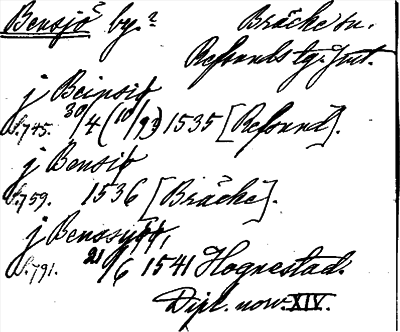 Bensjö by? Bräcke sn.
Refsunds tg. Jmt.
j Beinsiö
s. 745. 30/4 (10/9?) 1535 [Refsund].
j Bensiö
s. 759. 1536 [Bräcke].
j Benssyöö,
s. 791. 21/6 1541 Hognestad.
Dipl. norv. XIV.